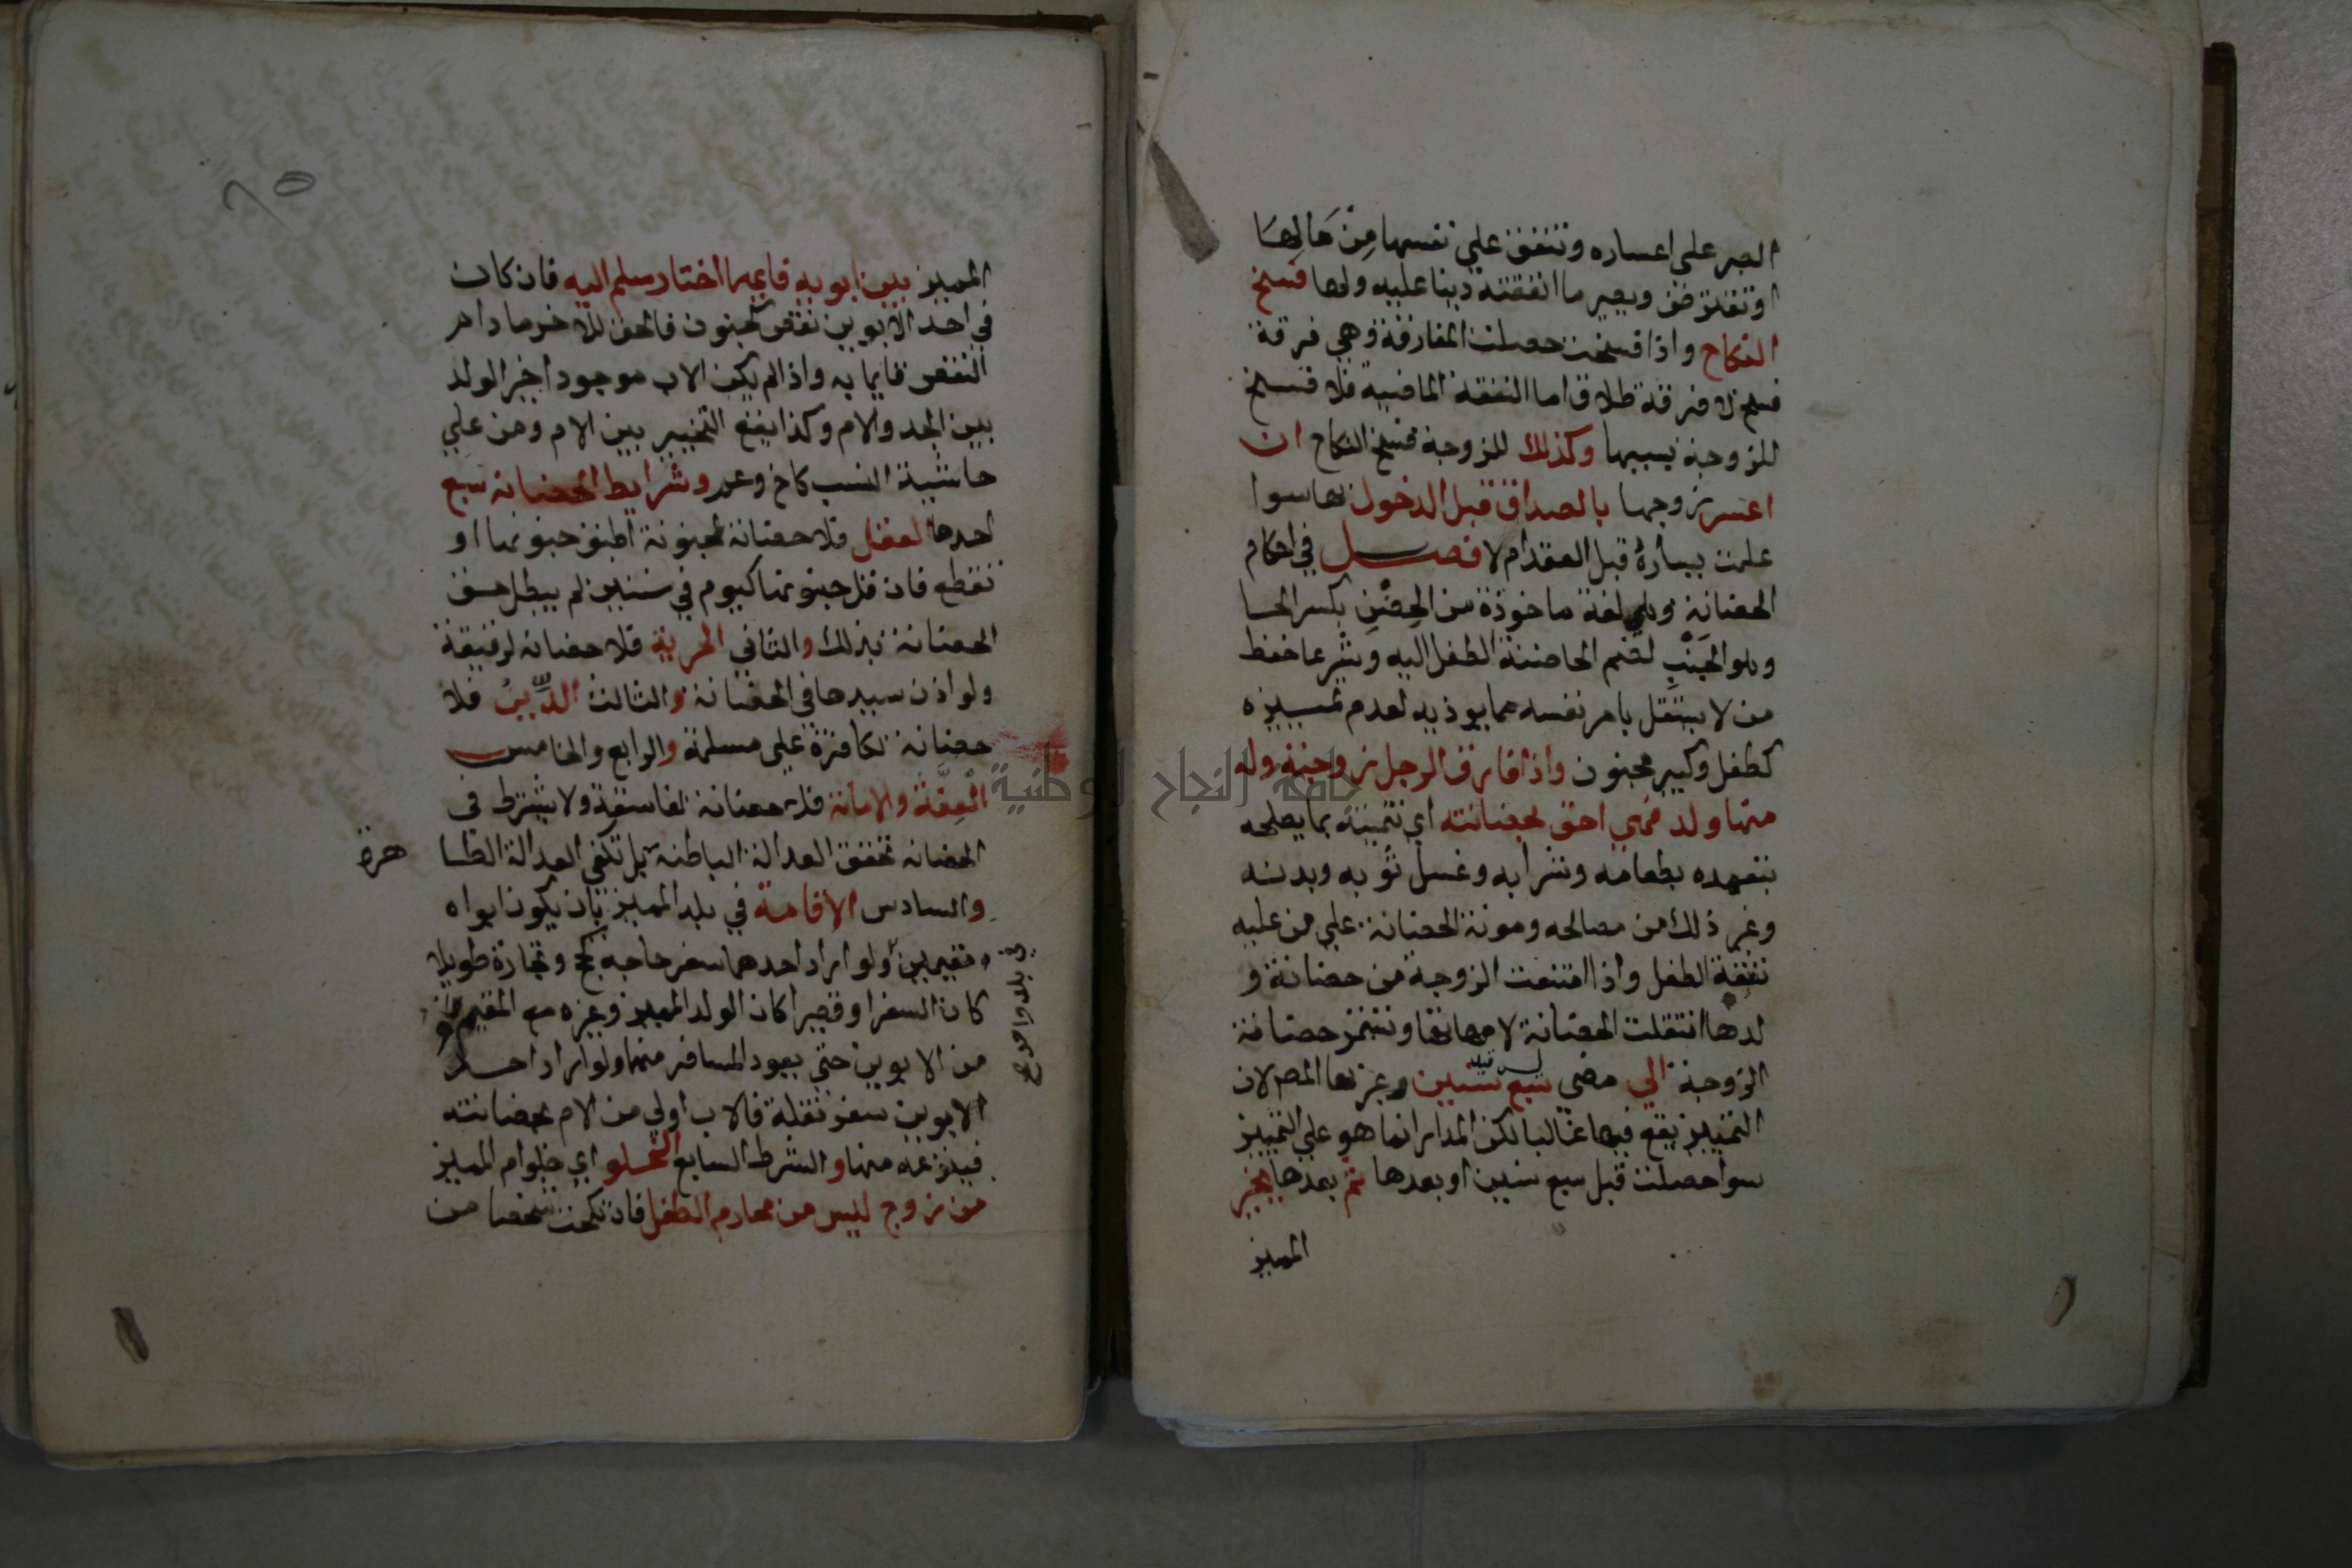 الصبر على اعساره وتنفق على نفسها مِنْ مَالِهَا
او تقترض ويصير ما انفقته دينا عليه ولها فسخ
النكاح واذا فسخت حصلت المفارقة وهي فرقة
فسخ لا فرقة طلاق اما النفقة الماضية فلا فسخ
للزوجة بسببها وكذلك للزوجة فسخ النكاح ان
اعسر زوجها بالصداق قبل الدخول بها سوا
علمت يساره قبل العقد ام لا فصل في احكام
الحضانة وهي لغة ماخوذة من الحِضْنِ بكسر الحا
وهو الجَنْبِ لضم الحاضنة الطفل اليه وشرعا حفظ
من لا يستقل بامر نفسه عما يوذيه لعدم تمييزه
كطفل وكبير مجنون واذا فارق الرجل زوجته وله
منها ولد فهي احق بحضانته اي تنميته بما يصلحه
بتعهده بطعامه وشرابه وغسل ثوبه وبدنه
وغير ذلك من مصالحه ومونة الحضانة على من عليه
نفقة الطفل واذا امتنعت الزوجة من حضانة و
لدها انتقلت الحضانة لامهاتها وتستمر حضانة
الزوجة الي مضي سبع سنين وعبر بها المص لان
التمييز يقع فيها غالبا لكن المدار انما هو على التمييز
سوا حصلت قبل سبع سنين او بعدها ثم بعدها يخير
المميز
٦٥
المميز بين ابويه فايهما اختار سلم اليه فان كان
في احد الابوين نقص كجنون فالحق للاخر ما دام
النقص قايما به واذا لم يكن الاب موجود اخير الولد
بين الجد والام وكذا يقع التخيير بين الام ومن علي
حاشية النسب كاخ وعم وشرايط الحضانة سبع
احدها العقل فلا حضانة لمجنونة اطبق جنونها او
تقطع فان قل جنونها كيوم في سنين لم يبطل حق
الحضانة بذلك والثاني الحرية فلا حضانة لرقيقة
ولو اذن سيدها في الحضانة والثالث الدِّينُ فلا
حضانة لكافرة على مسلمة والرابع والخامس
العِفَّة والامانة فلا حضانة لفاسقة ولا يشترط في
الحضانه تحقق العدالة الباطنة بل تكفي العدالة الظا
هرة
والسادس الاقامة في بلد المميز بان يكون ابواه
مقيمين ولو اراد احدهما سفر حاجه كحج وتجارة طويلا
في بلد واحد
كان السفر او قصيرا كان الولد المميز وغيره مع المقيم
من الابوين حتى يعود المسافر منهما ولو اراد احد
الابوين سفر نقلة فالاب اولي من الام بحضانته
فينزعه منها والشرط السابع الخلو اي خلو ام المميز
من زوج ليس من محارم الطفل فان نكحت شخصا من
جامعة النجاح الوطنية